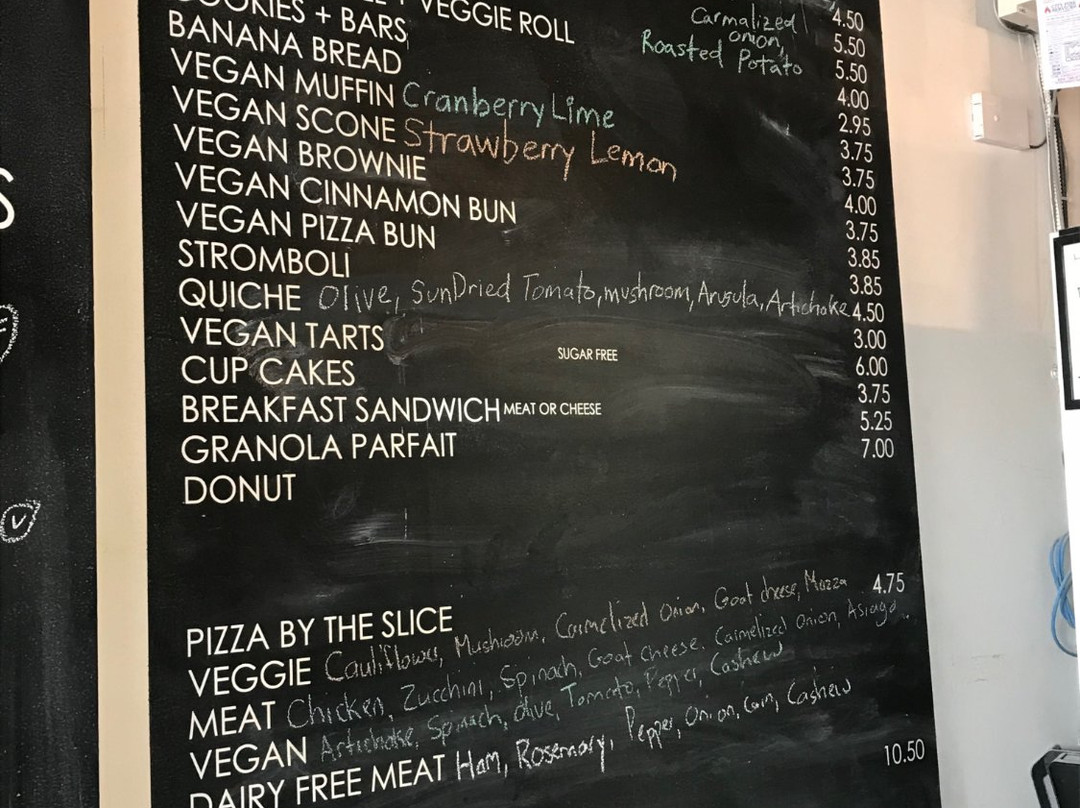 VEGGIE ROLL
Carmalized
onion,
Roasted Potato
COOKIES + BARS
BANANA BREAD
VEGAN MUFFIN Cranberry Lime
VEGAN SCONE Strawberry Lemon
VEGAN BROWNIE
VEGAN CINNAMON BUN
VEGAN PIZZA BUN
STROMBOLI
QUICHE Olive, SunDried Tomato, mushroom, Arugula, Artichoke
VEGAN TARTS
SUGAR FREE
CUP CAKES
BREAKFAST SANDWICH MEAT OR CHEESE
GRANOLA PARFAIT
DONUT
4.50
5.50
5.50
4.00
2.95
3.75
3.75
4.00
3.75
3.85
3.85
4.50
3.00
6.00
3.75
5.25
7.00
PIZZA BY THE SLICE 4.75
VEGGIE Cauliflower, Mushroom, Carmelized Onion, Goat cheese, Mozza
MEAT Chicken, Zucchini, Spinach, Goat cheese, Carmelized onion, Asiago
VEGAN Artichoke, Spinach, Olive, Tomato, Pepper, Cashew
DAIRY FREE MEAT Ham, Rosemary, Pepper, Onion, Corn, Cashew
10.50